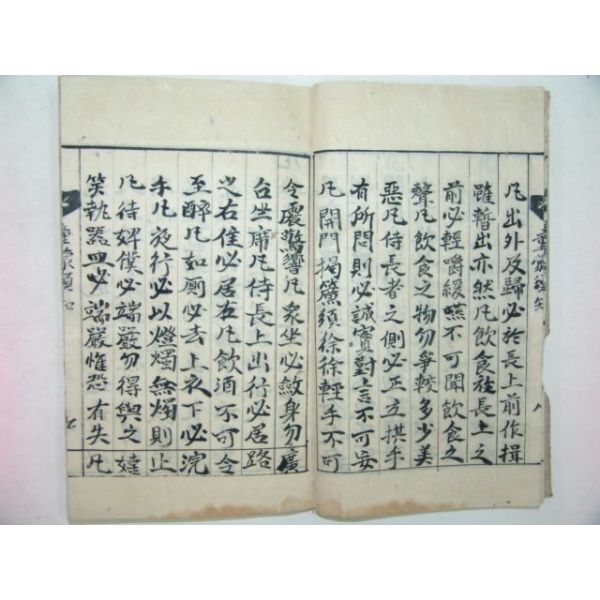 童蒙須知
凡出外及歸必於長上前作揖
雖暫出亦然凡飲食在長上之
前必輕嚼緩嚥不可聞飲食之
聲凡飲食之物勿爭較多少美
惡凡侍長者之側必正立拱手
有所問則必誠實對言不可妄
凡開門揭簾須徐徐輕手不可
令震驚響凡衆坐必斂身勿廣
占坐席凡侍長上出行必居路
之右住必居左凡飲酒不可令
至醉凡如厠必去上衣下必浣
手凡夜行必以燈燭無燭則止
凡待婢僕必端嚴勿得與之嬉
笑執器皿必端嚴惟恐有失凡
童蒙須知
七